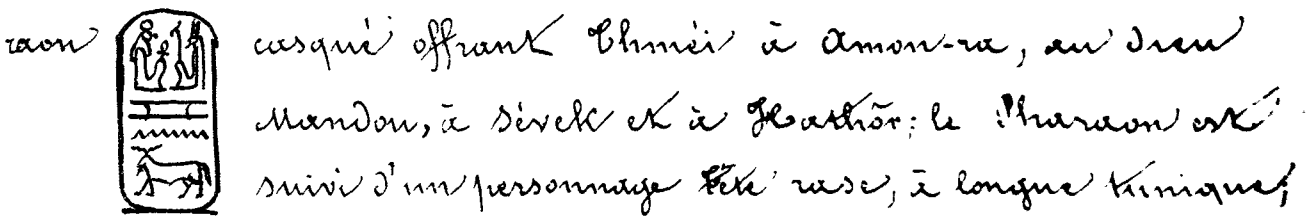 raon casqué offrant Thméi à Amon-ra, au Dieu
Mandou, à Sévek et à Hathôr; le Pharaon est
suivi d'un personnage tête rase, à longue tunique,